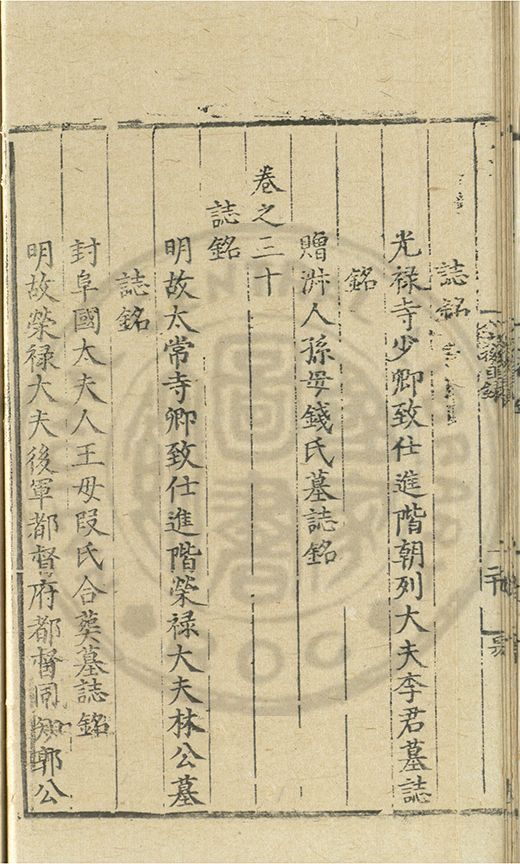 誌銘
光禄寺少卿致仕進階朝列大夫李君墓誌
銘
贈淑人孫母錢氏墓誌銘
卷之三十
誌銘
明故太常寺卿致仕進階榮禄大夫林公墓
誌銘
封阜國太夫人王母段氏合葬墓誌銘
明故榮禄大夫後軍都督府都督同知郭公